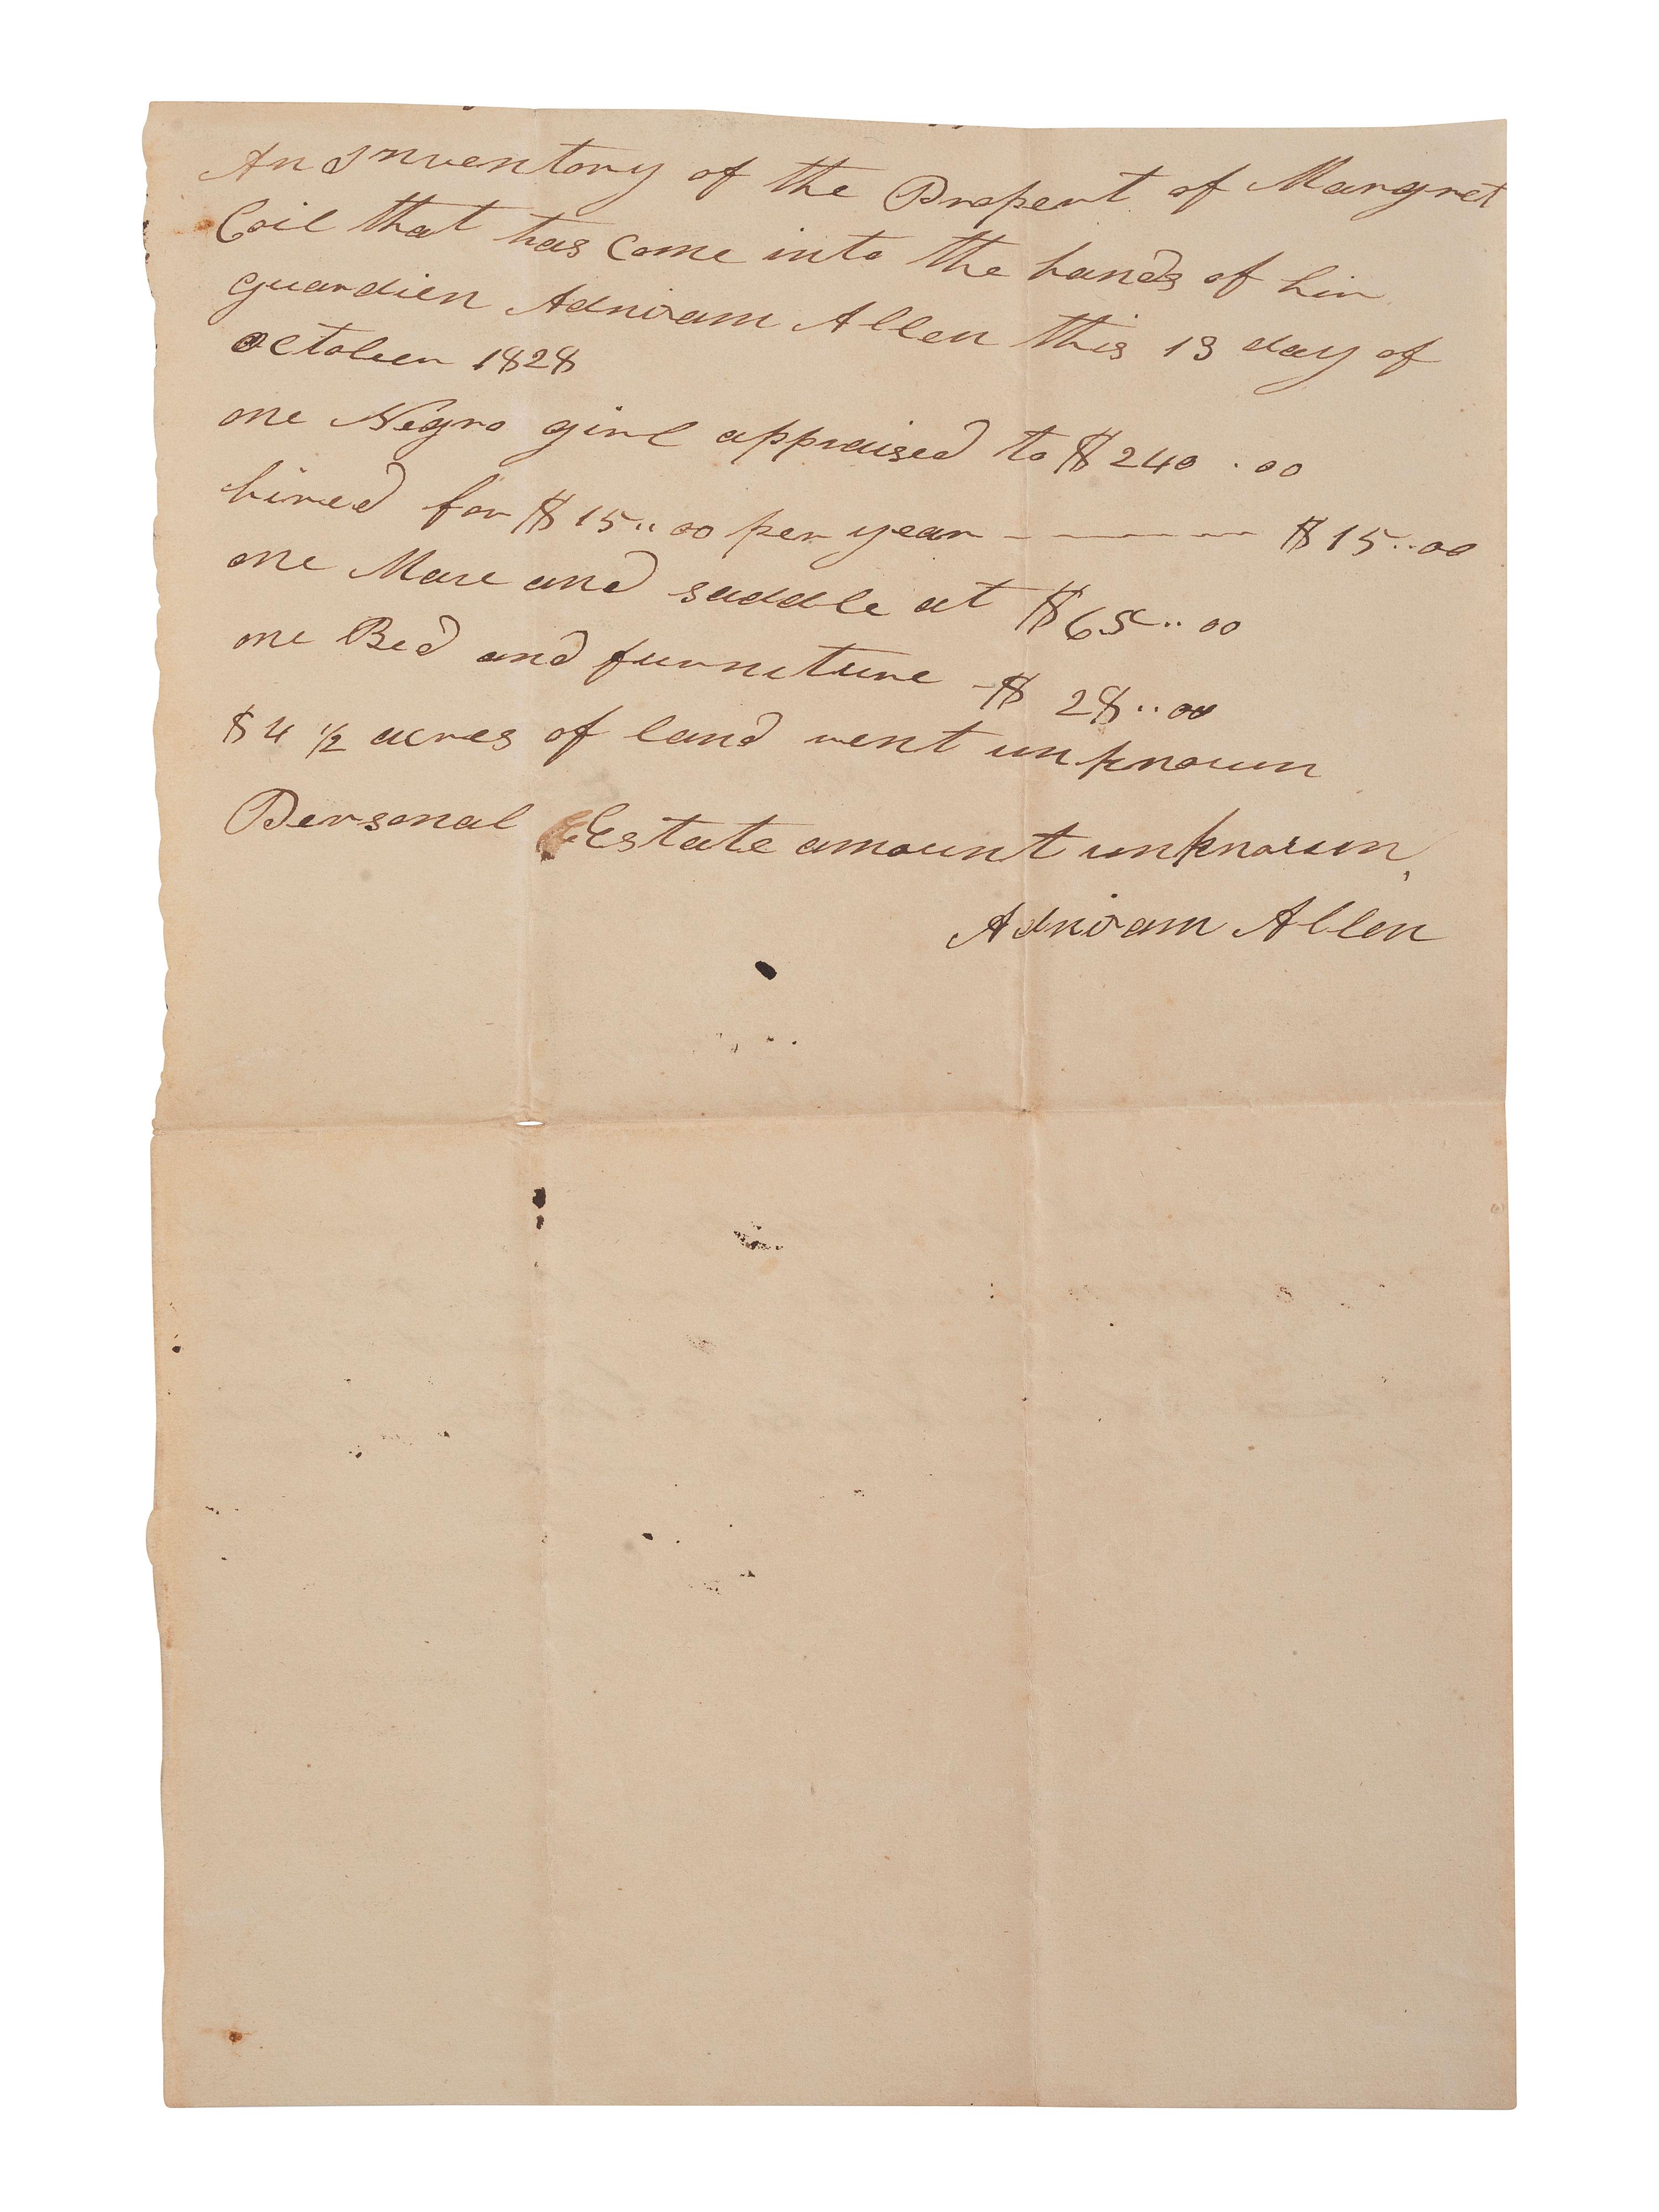 An Inventory of the Propert of Margret
Coil that has Come into the hands of hir
guardien Adniram Allen this 13 day of
October 1828
one Negro girl appraised to $240.00
hired for $15..00 per year ------ $15..00
one Mare and saddle at $65..00
one Bed and furniture - $ 28..00
84 1/2 acres of land rent unknown
Personal Eestate amount unknown,
Adniram Allen